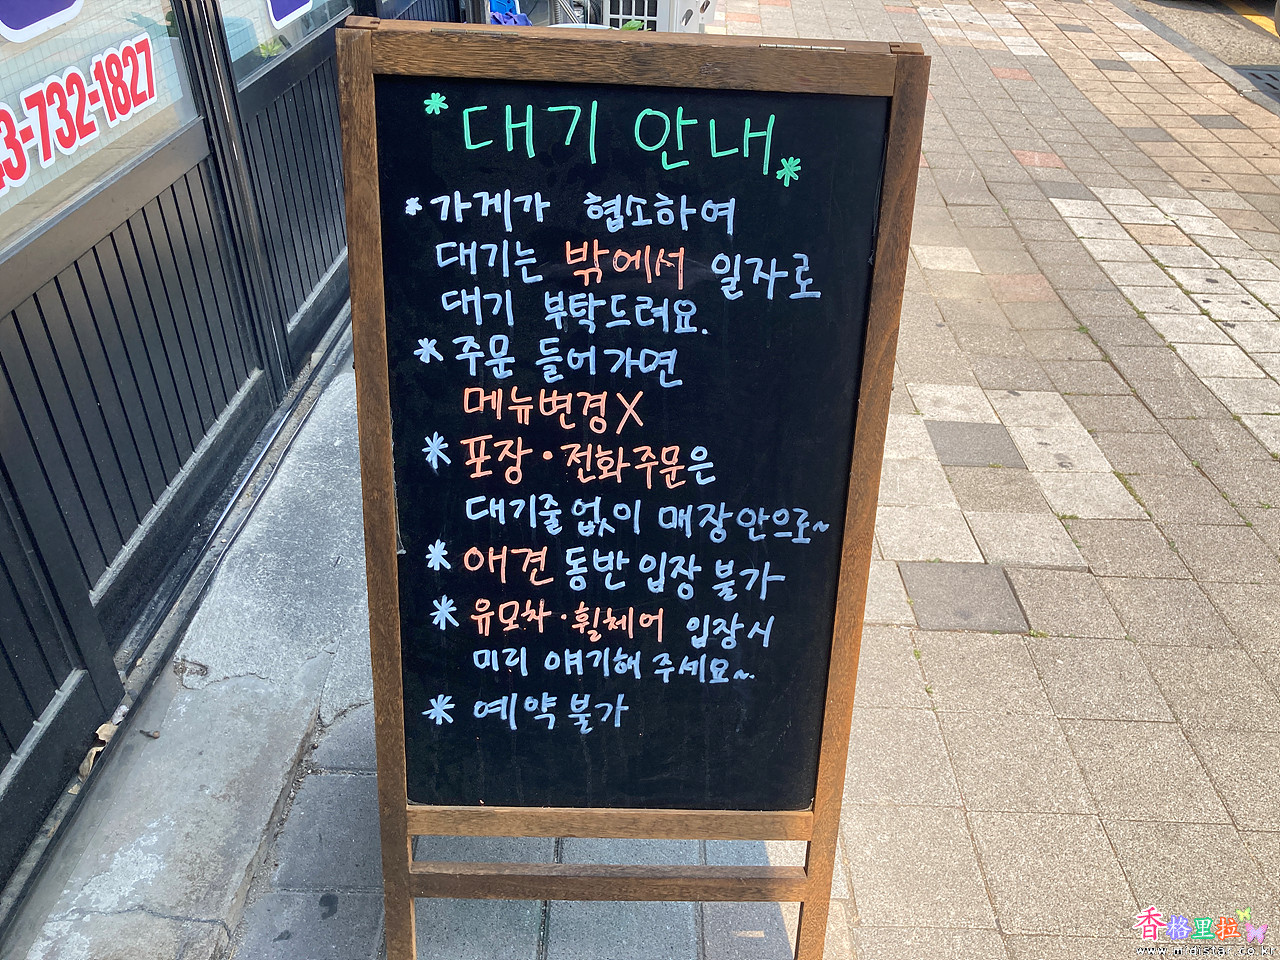 3-732-1827
*대기 안내*
* 가게가 협소하여
대기는 밖에서 일자로
대기 부탁드려요.
* 주문 들어가면
메뉴변경X
* 포장·전화주문은
대기줄없이 매장안으로~
* 애견 동반 입장 불가
* 유모차·휠체어 입장시
미리 얘기해 주세요~
* 예약불가
香格里拉